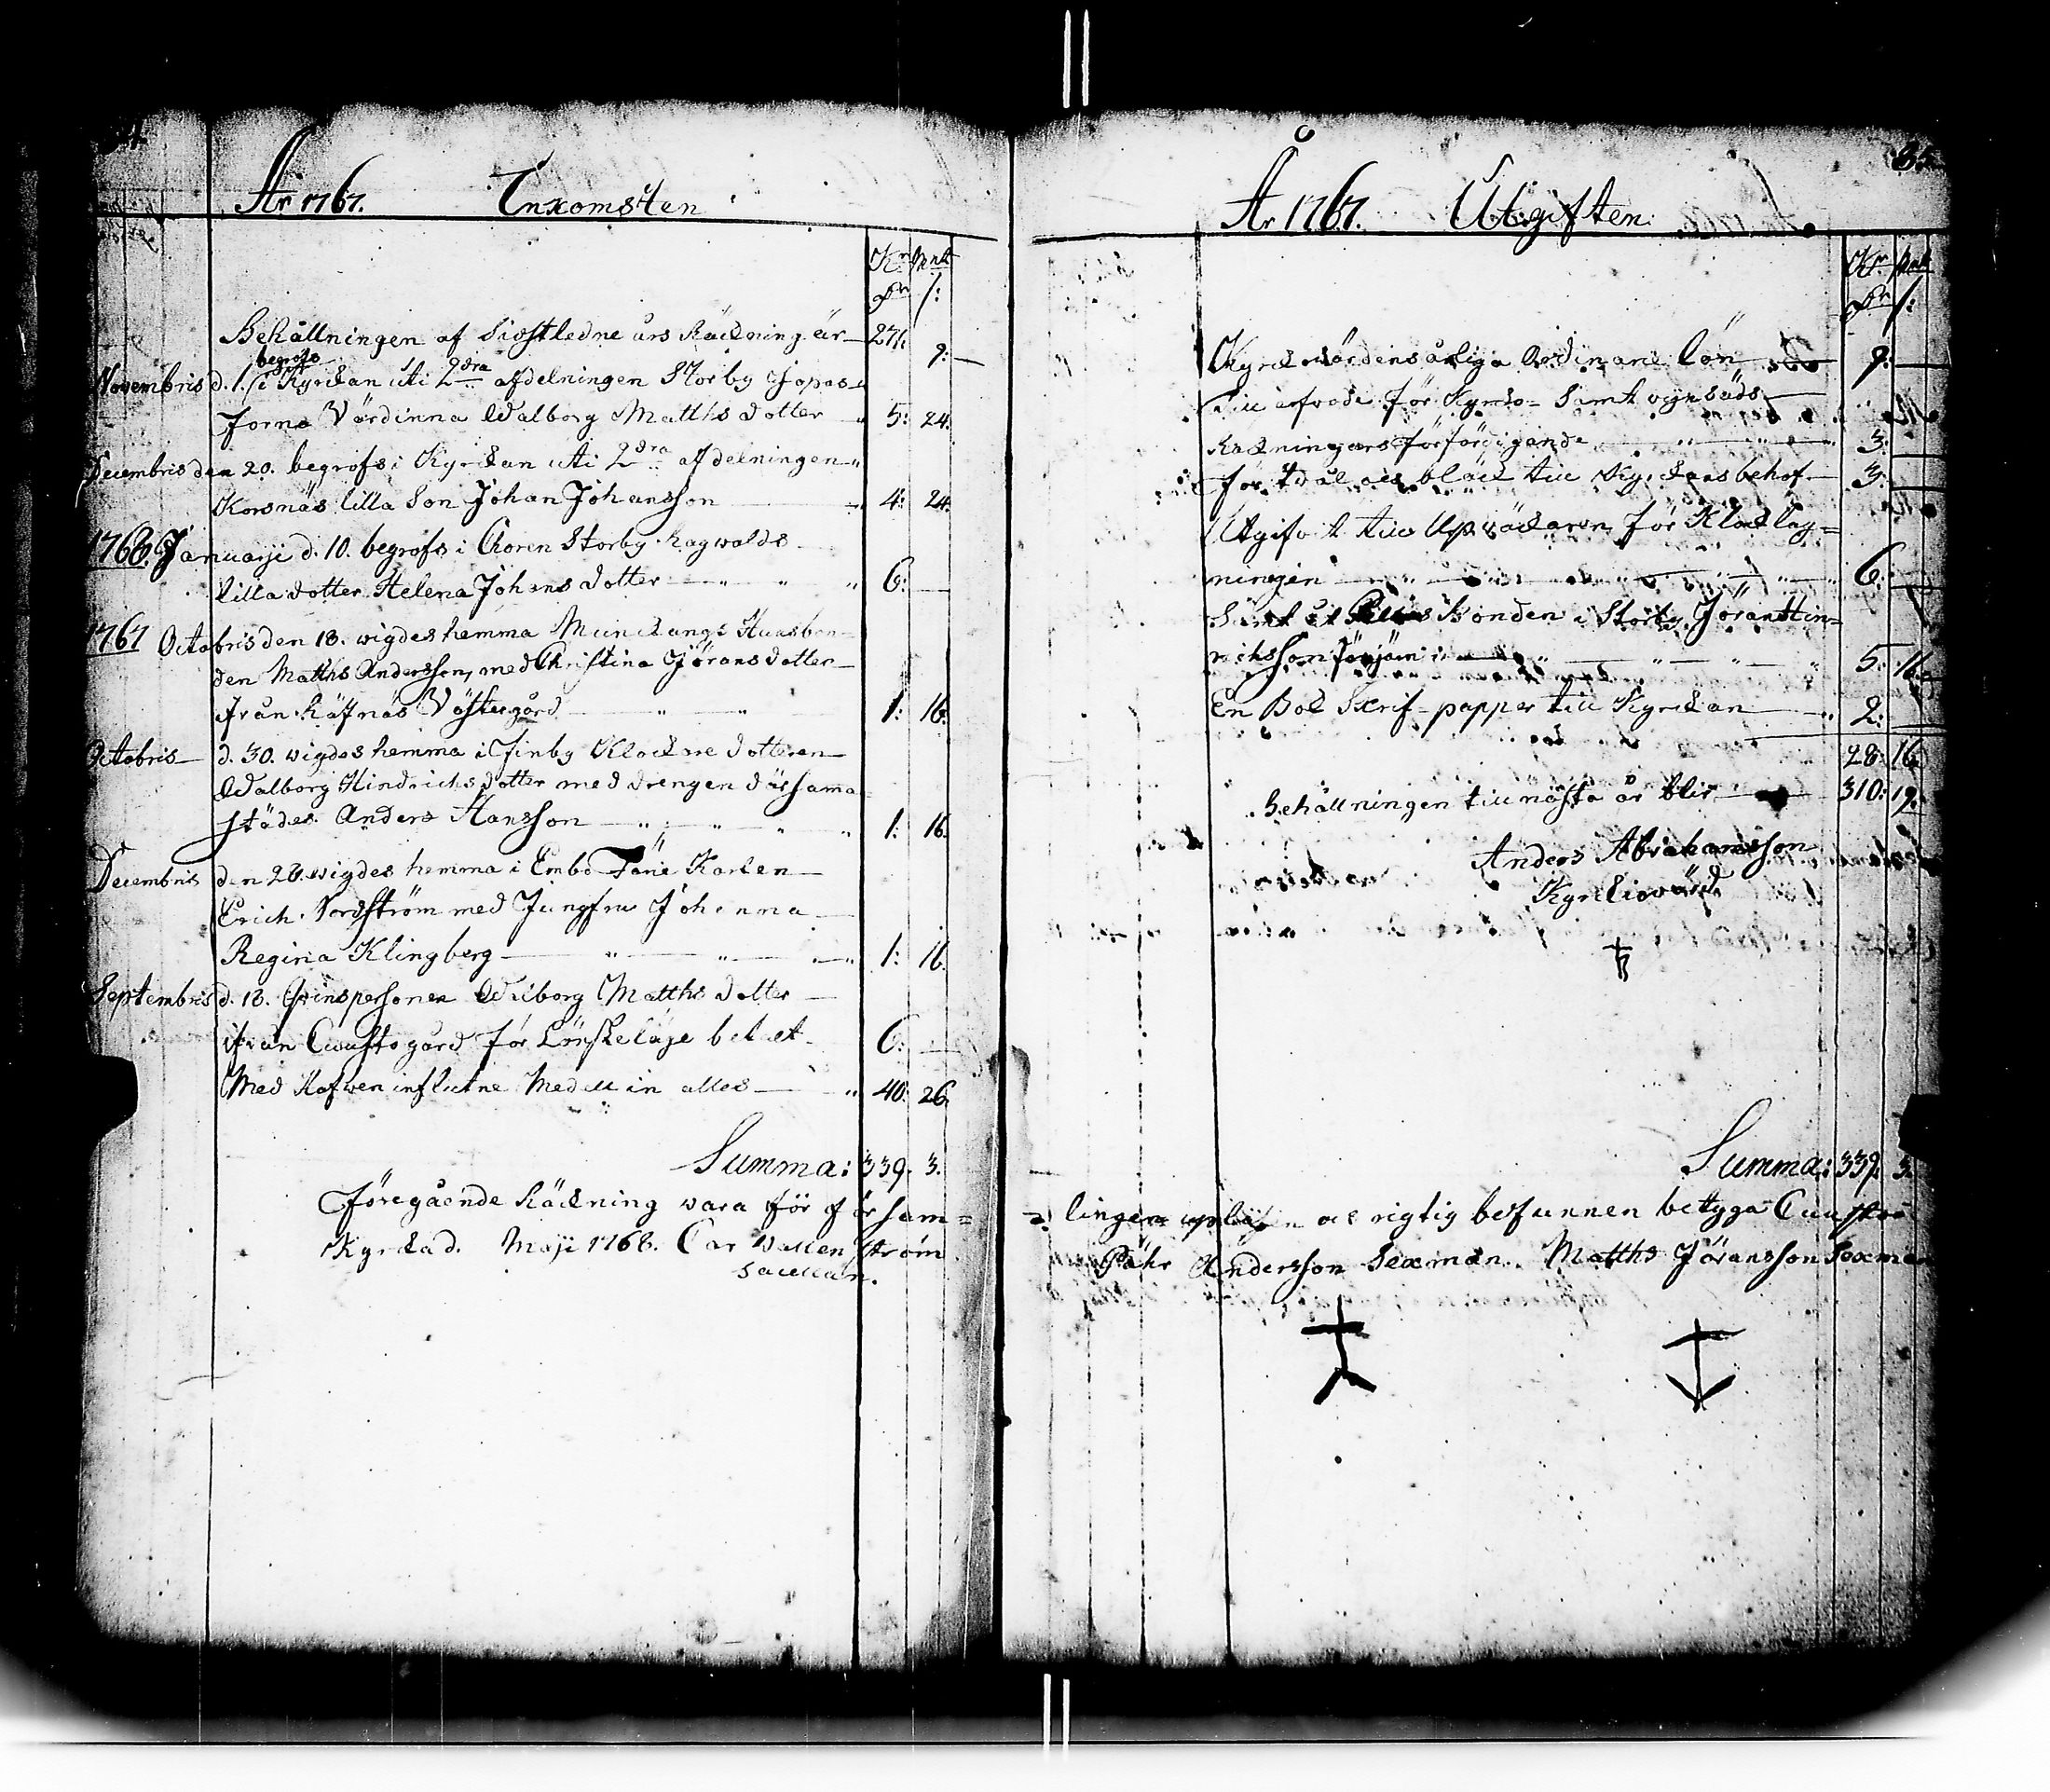 34
År 1767. Inkomsten
Kr Mnt
Dr /:
Behållningen af sidstledne års Räckning är 271. 9.
begrofs
Novembris d. 1. i Kyrckan uti 2dra afdelningen Storby Jopas
Jorns Värdinna Walborg Matths dotter 5: 24.
Decembris den 20. begrofs i Kyrckan uti 2dra afdelningen
Korsnäs lilla Son Johan Johansson 4: 24.
1768. Januarji d. 10. begrofs i Choren Storby Ragwalds
lilla dotter Helena Johans dotter 6:
1767 Octobris den 18. wigdes hemma Munckangs Husbon
den Matths Andersson, med Christina Jörans dotter
ifrån Räfnäs Västergård 1: 16.
Octobris d. 30. wigdes hemma i Finby Klockare dotteren
Walborg Hindrichs dotter med drengen där sama
städes Anders Hansson 1: 16.
Decembris den 28. wigdes hemma i Embo Karlen
Erich Nordström med Jungfru Johanna
Regina Klingberg 1: 16.
Septembris d. 18. Qvinspersonen Walborg Matths dotter
ifrån gård för Lönskeläje betalt 6:
Med Hafwen influtne Medell in alles 40: 26.
Summa: 339. 3.
Föregående Räckning vara för församl=
Kyrckad. Maji 1768. Car Wallenström
35
År 1767. Utgiften
Kr Mnt
Dr /:
Kyrckvärdens årliga Ordinarie lön 9:
Till arfvode för Kyrko- samt
Räckningars förfärdigande 3:
för och bläck till Kyrckans behof 3:
Utgifvit till Upväckaren för Klock
ningen 6:
Samt åt Bonden i Storby Jöran Hin=
richsson 5: 16.
En Bok Skrif-papper till Kyrckan 2:
28: 16
Behållningen till nästa år blir 310: 19.
Anders Abrahamsson
Kyrckiovärd
Summa: 339. 3.
lingen upläsen och rigtig befunnen betyga
Pähr Andersson Sexman. Matths Jöransson Sexman